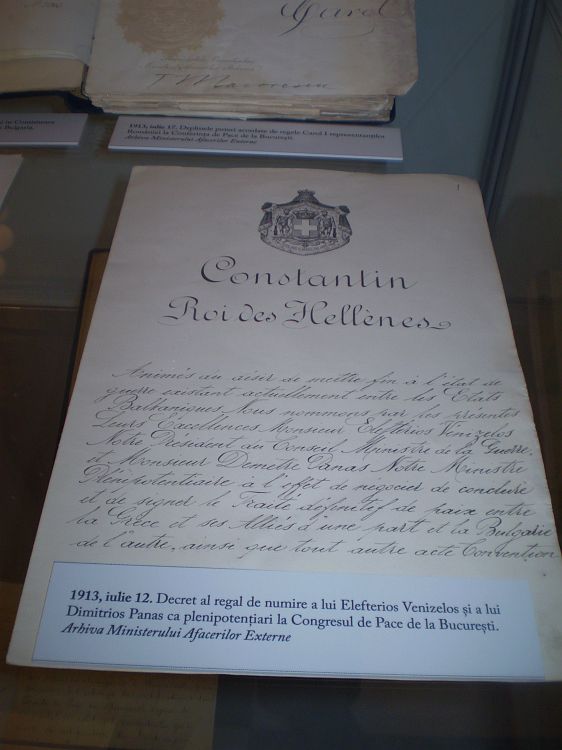 Carol
T. Maiorescu
1913, iulie 17. Deplinele puteri acordate de regele Carol I reprezentanților
României la Conferința de Pace de la București.
Arhiva Ministerului Afacerilor Externe
Bulgaria.
1
Constantin
Roi des Hellènes
Animés du désir de mettre fin à l'état de
guerre existant actuellement entre les Etats
Balkaniques, Nous nommons par les présentes
Leurs Excellences Monsieur Elefterios Venizelos
Notre Président du Conseil Ministre de la Guerre,
et Monsieur Demetre Panas Notre Ministre
Plénipotentiaire à l'effet de négocier de conclure
et de signer le Traité définitif de paix entre
la Grèce et ses Alliés d'une part et la Bulgarie
de l'autre, ainsi que tout autre acte Convention
1913, iulie 12. Decret al regal de numire a lui Elefterios Venizelos și a lui
Dimitrios Panas ca plenipotențiari la Congresul de Pace de la București.
Arhiva Ministerului Afacerilor Externe